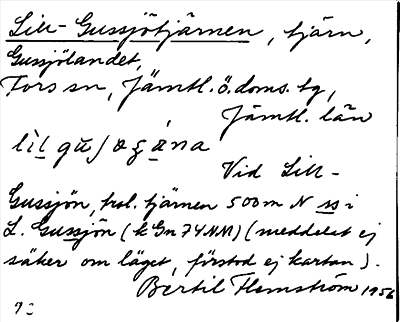 Lill-Gussjötjärnen, tjärn,
Gussjölandet,
Fors sn, Jämtl. ö. doms. tg,
Jämtl. län
Vid Lill-
Gussjön, tjärnen 500 m N
L. Gussjön (k Gn 74NM) (meddelat ej
säker om läget, förstod ej kartan).
Bertil Flemström 1956